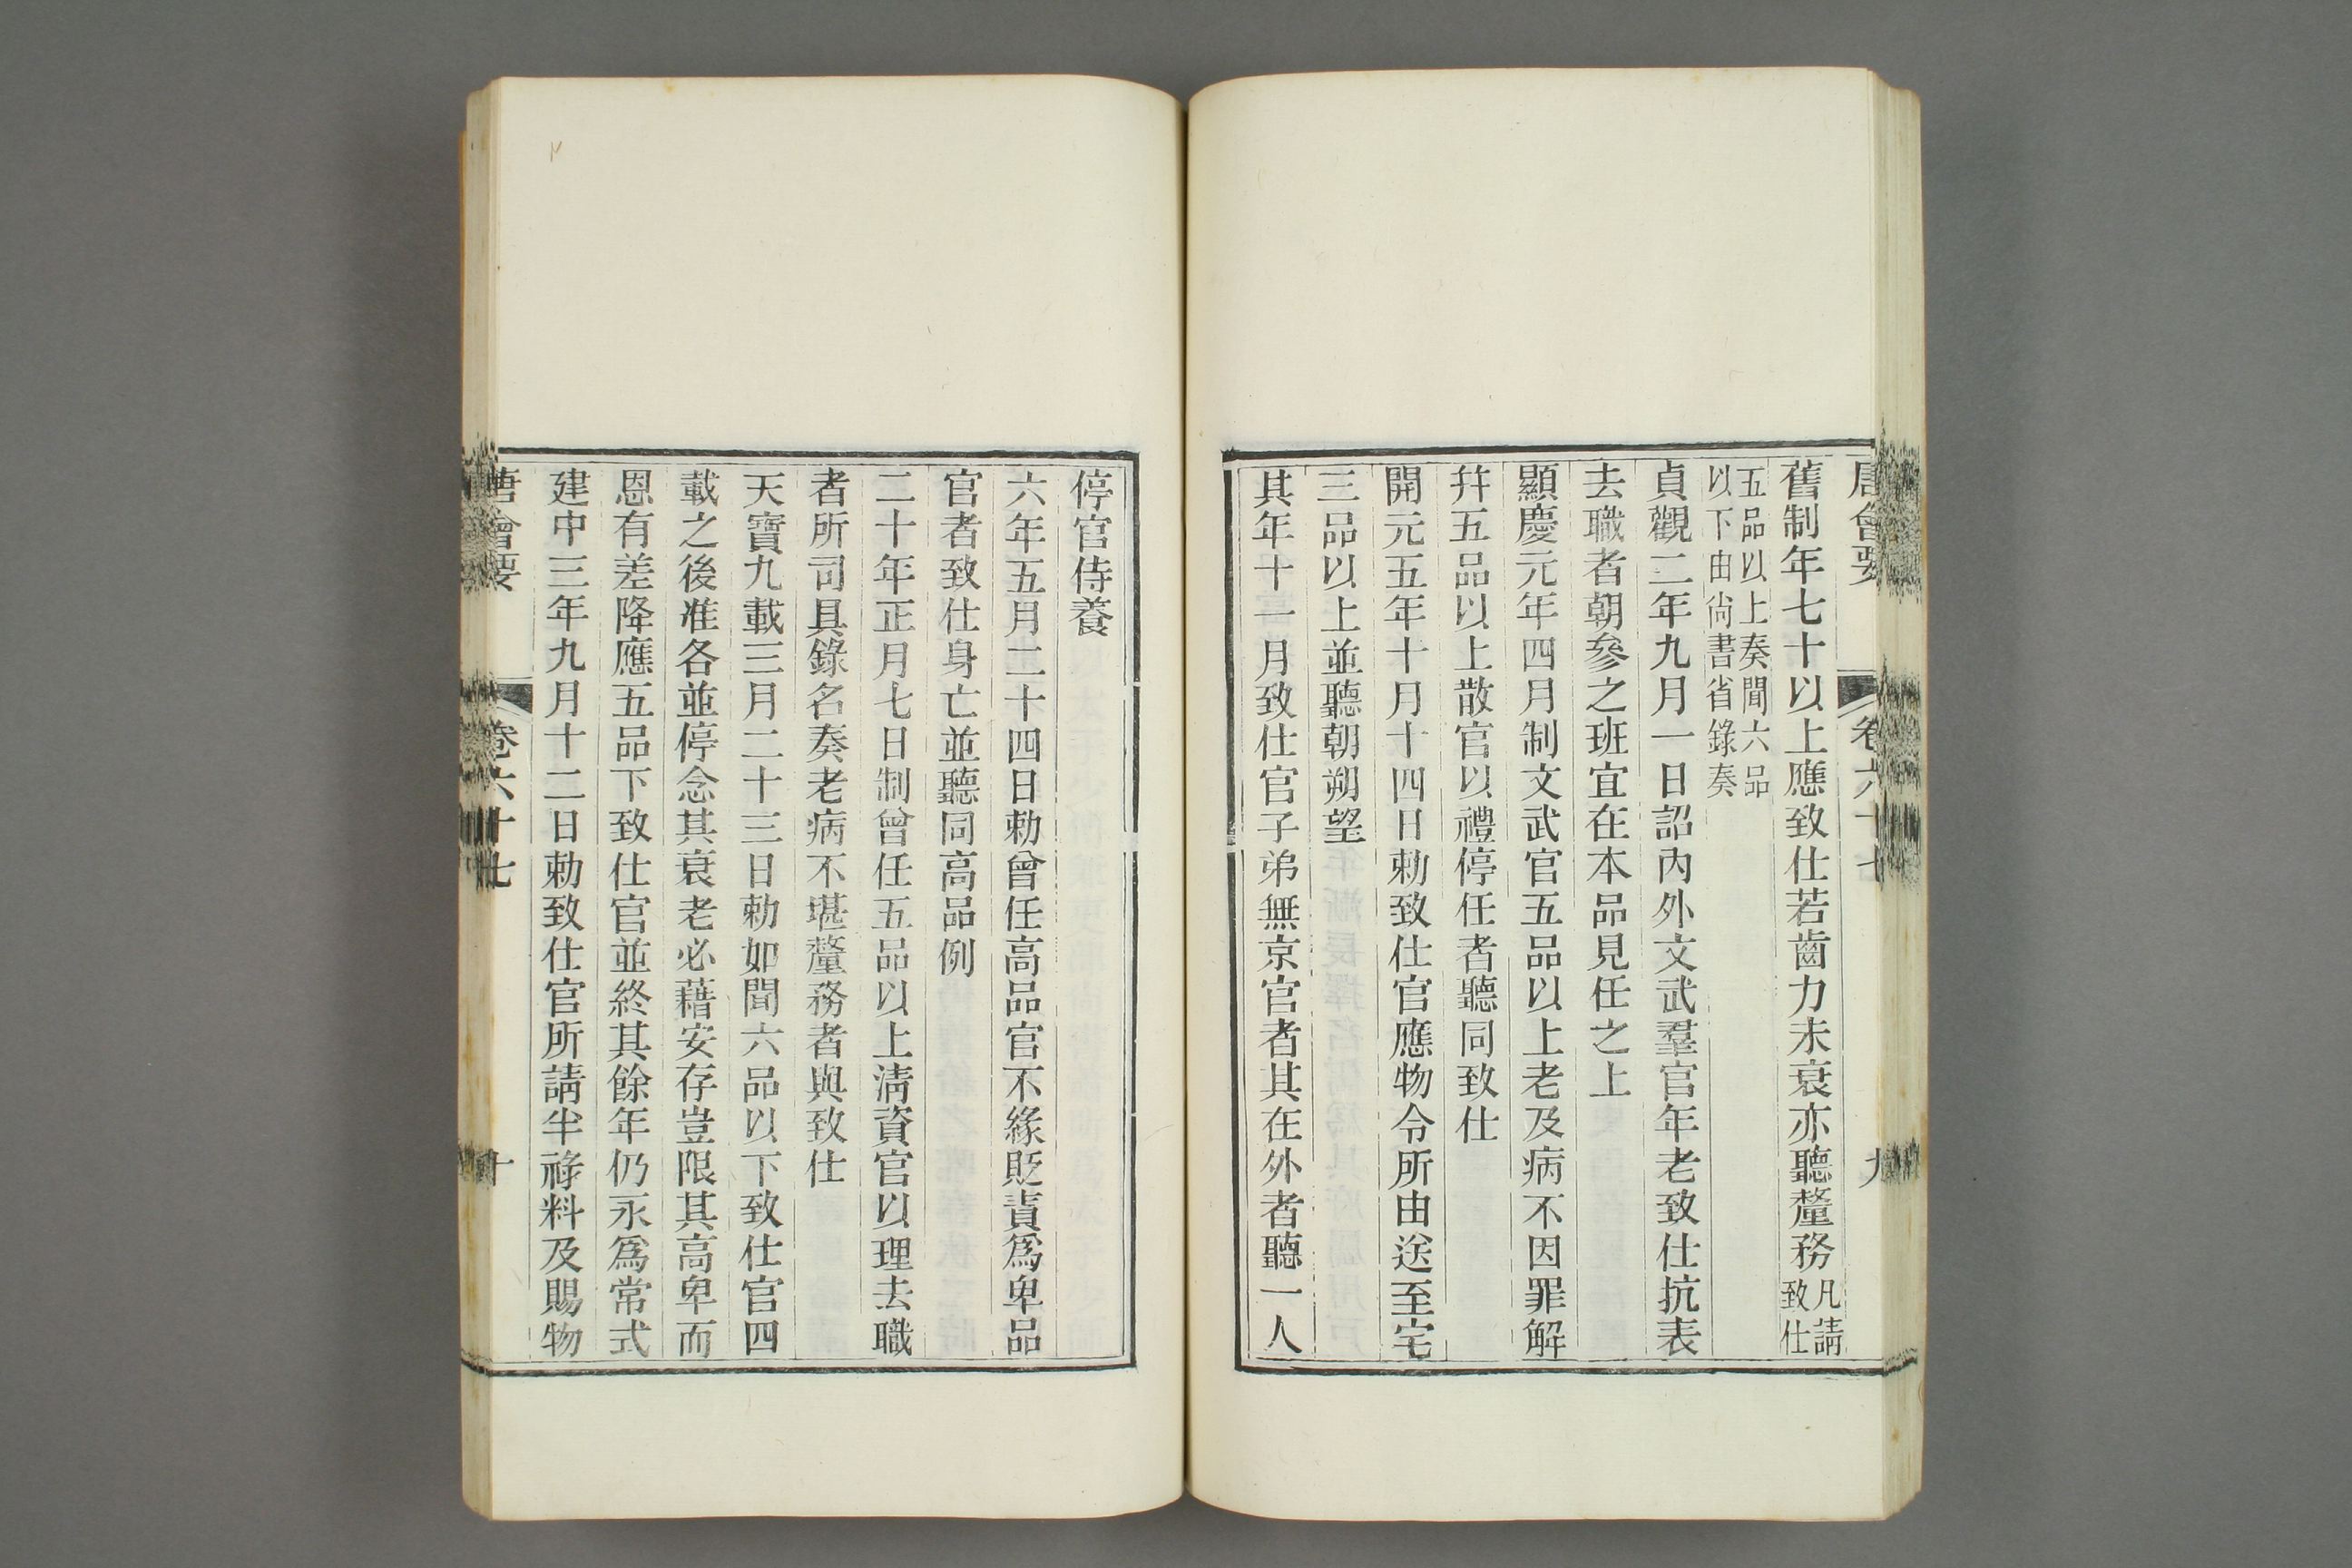 唐會要 卷六十七 九
舊制年七十以上應致仕若齒力未衰亦聽釐務凡請致仕
五品以上奏聞六品
以下由尙書省錄奏
貞觀二年九月一日詔內外文武羣官年老致仕抗表
去職者朝參之班宜在本品見任之上
顯慶元年四月制文武官五品以上老及病不因罪解
幷五品以上散官以禮停任者聽同致仕
開元五年十月十四日勅致仕官應物令所由送至宅
三品以上並聽朝朔望
其年十一月致仕官子弟無京官者其在外者聽一人
停官侍養
六年五月二十四日勅曾任高品官不緣貶責爲卑品
官者致仕身亡並聽同高品例
二十年正月七日制曾任五品以上淸資官以理去職
者所司具錄名奏老病不堪釐務者與致仕
天寶九載三月二十三日勅如聞六品以下致仕官四
載之後准各並停念其衰老必藉安存豈限其高卑而
恩有差降應五品下致仕官並終其餘年仍永爲常式
建中三年九月十二日勅致仕官所請半祿料及賜物
唐會要 卷六十七 十